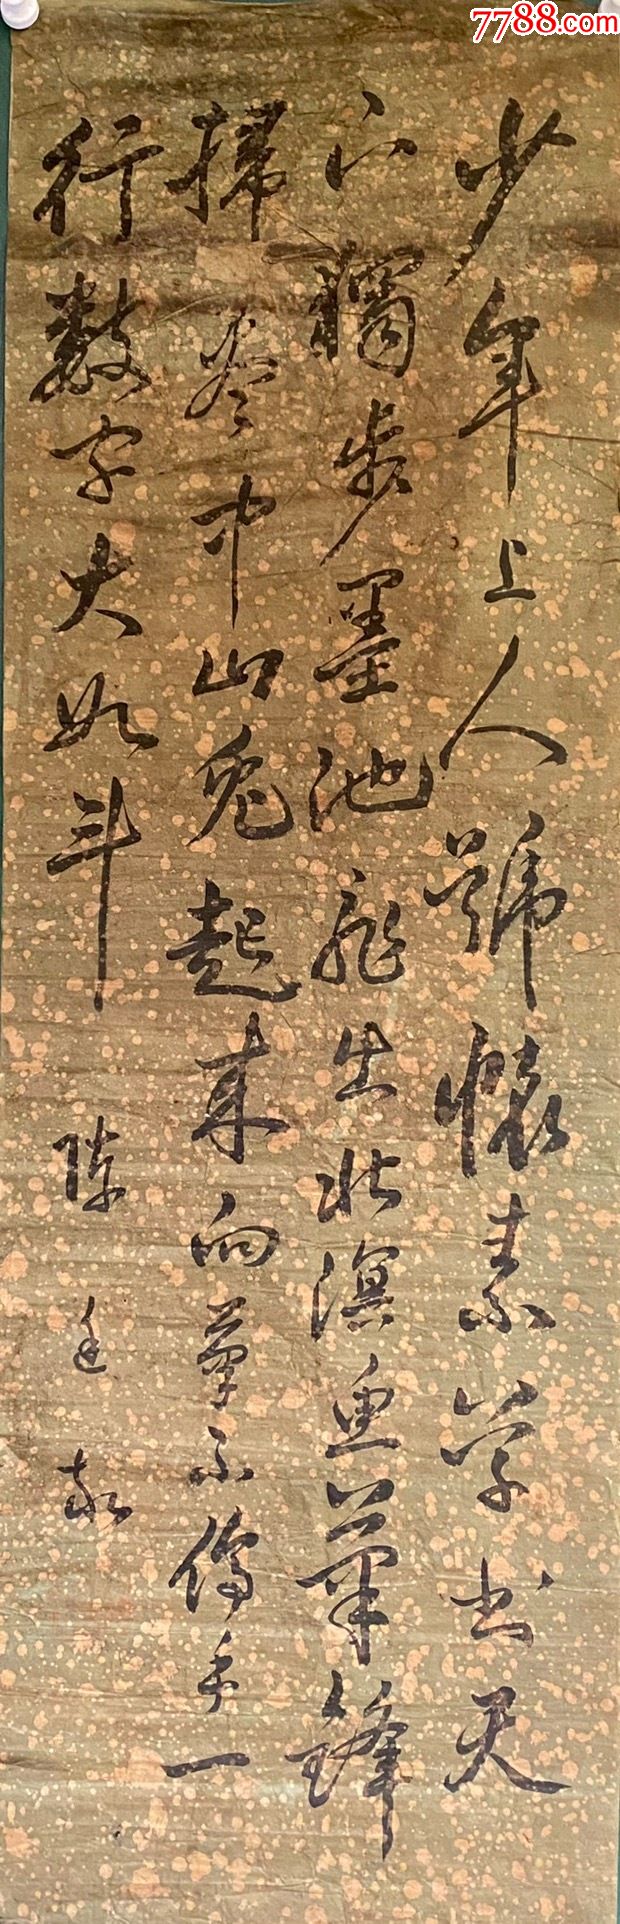 7788.com
少年上人號懷素草书天
下獨步墨池飛出北溟魚筆鋒
掃尽中山兔起来向筆不停手一
行数字大如斗
陳廷敬